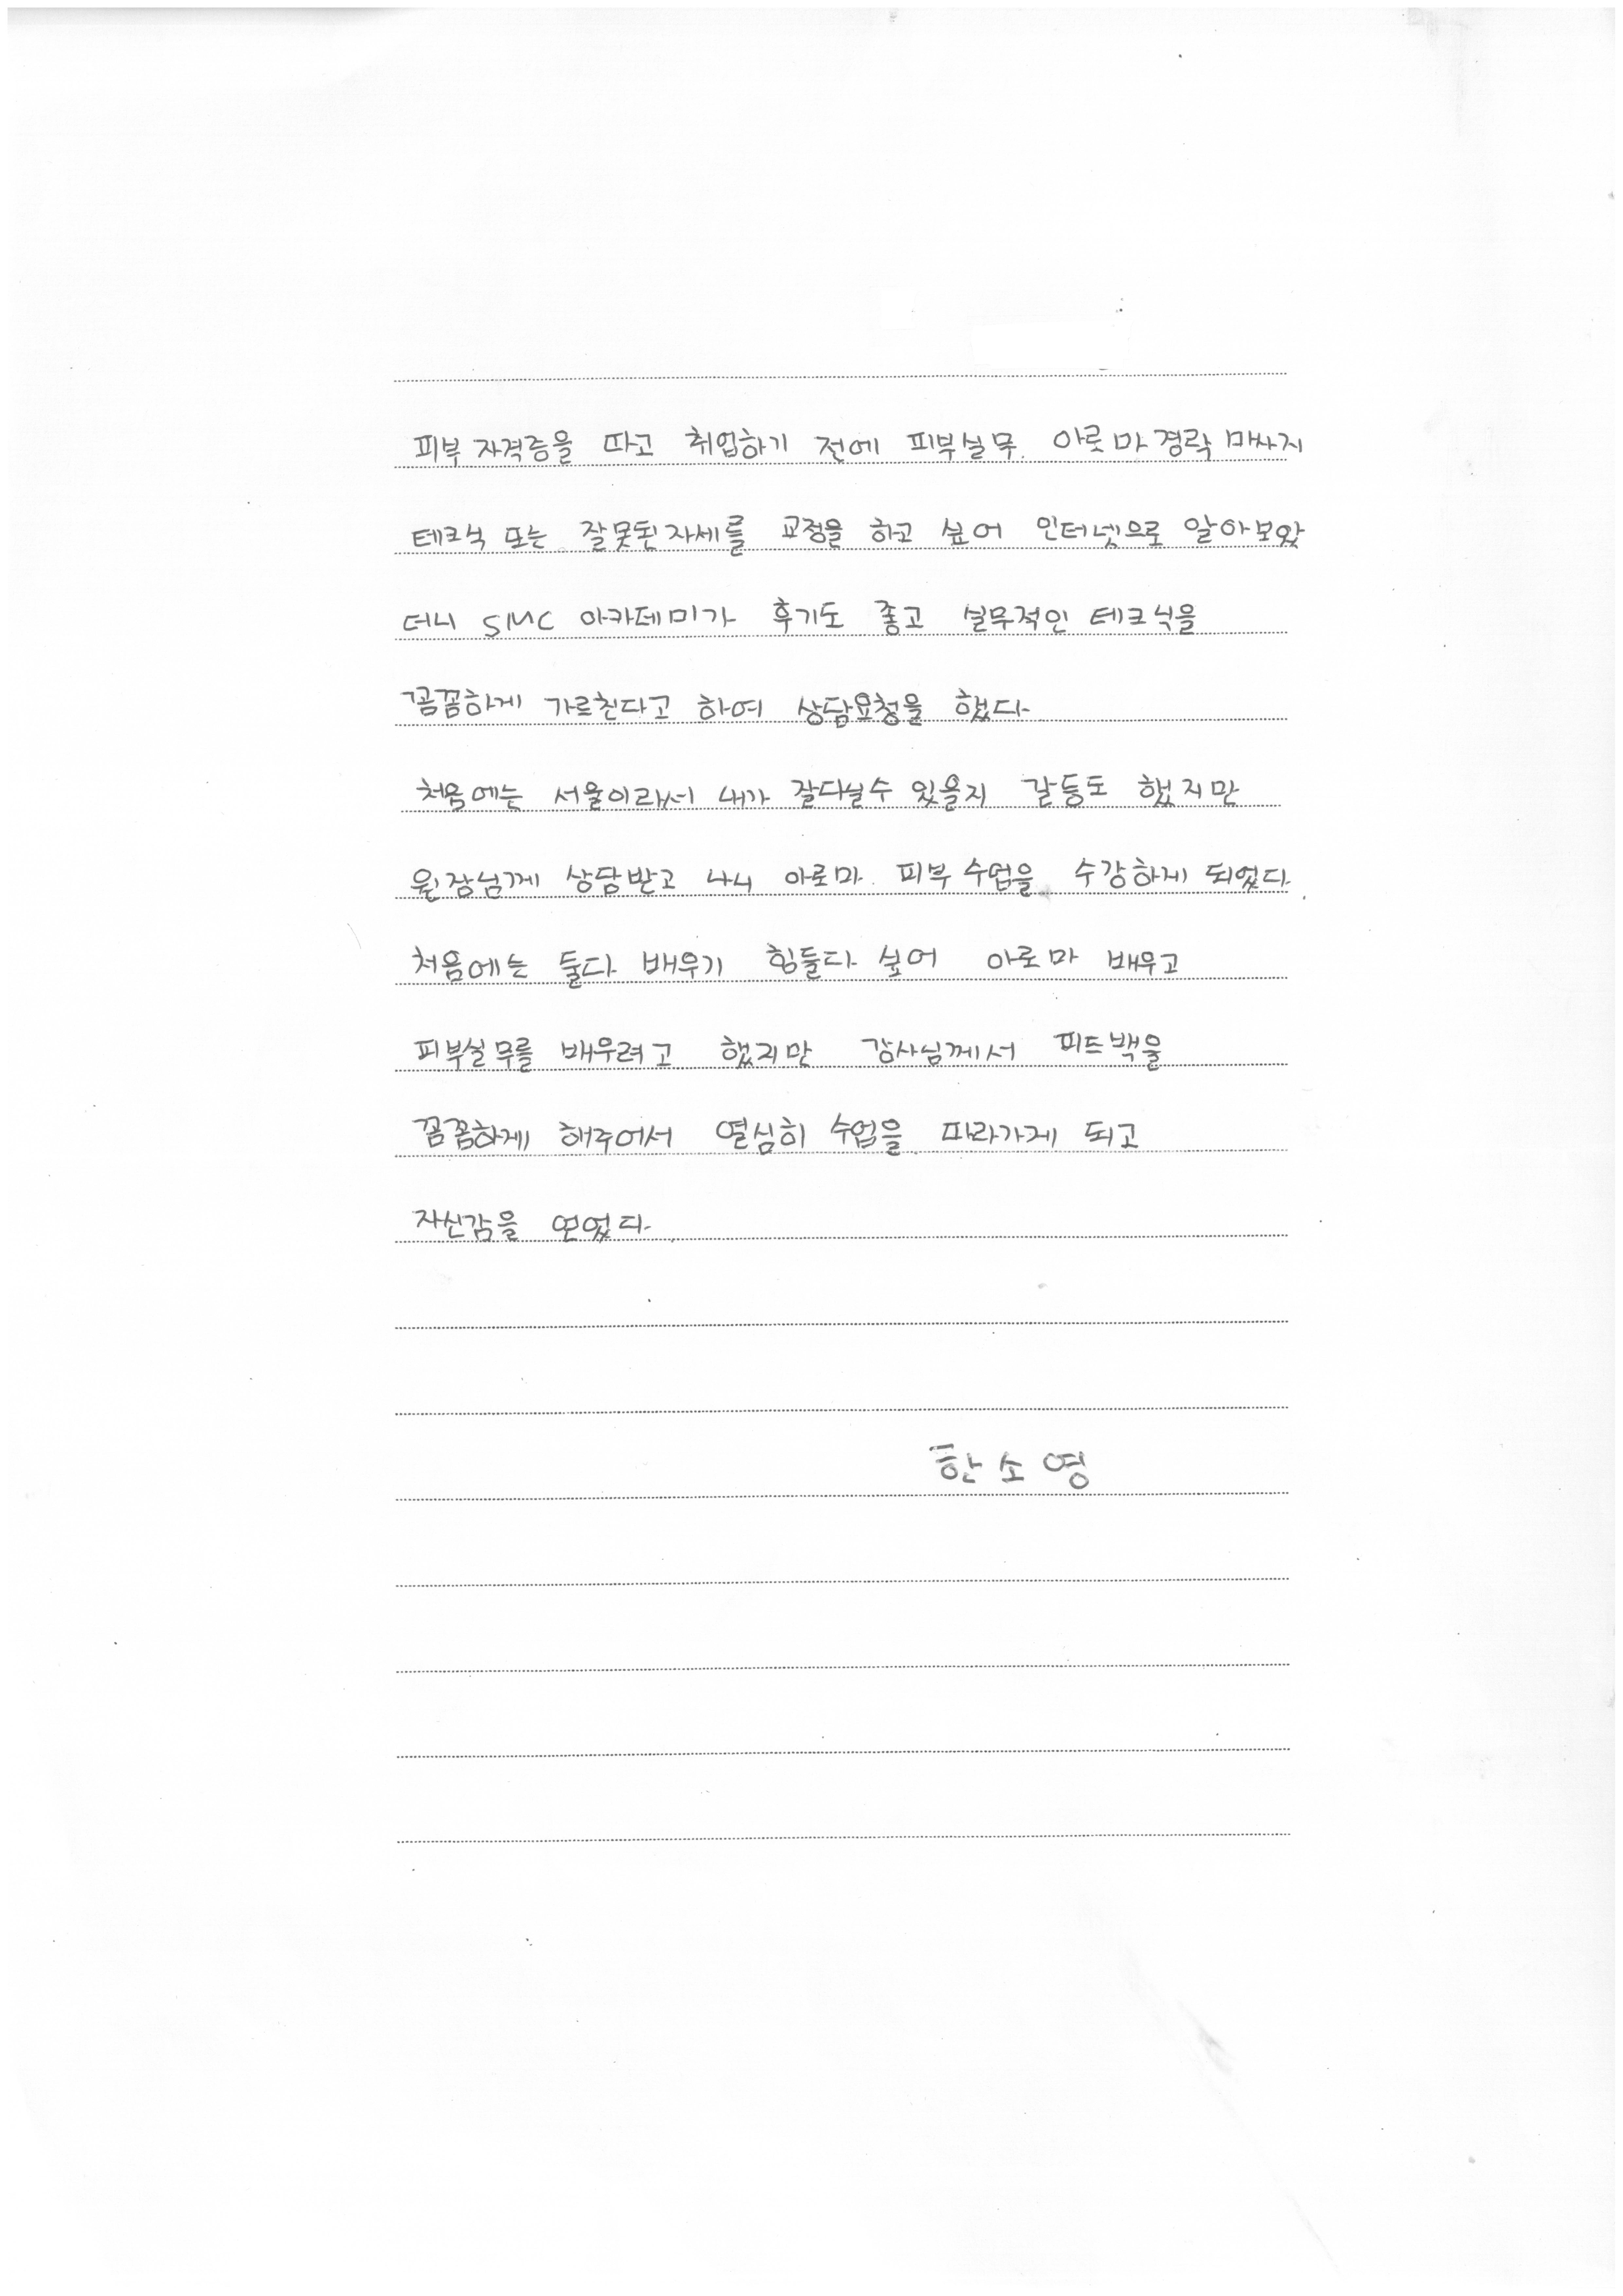 피부 자격증을 따고 취업하기 전에 피부실무. 아롯마 경락 마사지
테크닉 또는 잘못된 자세를 교정을 하고 싶어 인터넷으로 알아보았
더니 SMC 아카데미가 후기도 좋고 실무적인 테크닉을
꼼꼼하게 가르친다고 하여 상담요청을 했다.
처음에는 서울이라서 내가 잘다닐수 있을지 갈등도 했지만
원장님께 상담받고 나니 아로마. 피부 수업을 수강하게 되었다.
처음에는 둘다 배우기 힘들다 싶어 아로마 배우고
피부실무를 배우려고 했지만 강사님께서 피드백을
꼼꼼하게 해주어서 열심히 수업을 따라가게 되고
자신감을 얻었다.
한소영